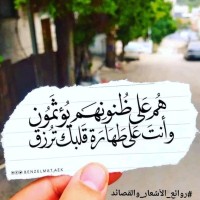 هُم عَلى ظُنونِهم يُؤثَمُون
وأنتَ عَلى طَهارة قَلبك تُرزق
BENZELMAT.AEK
#روائع_الأشعار_والقصائد